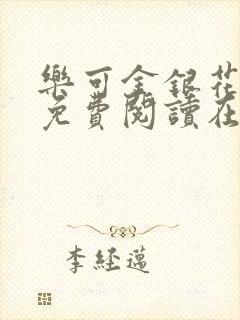 樂可金銀花
免費閱讀在
李經邁